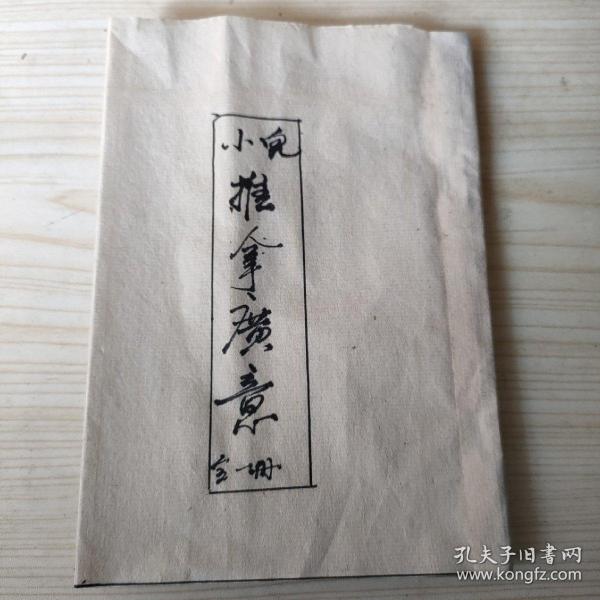 小兒
推拿廣意
全一冊
孔夫子旧书网
www.kongfz.com